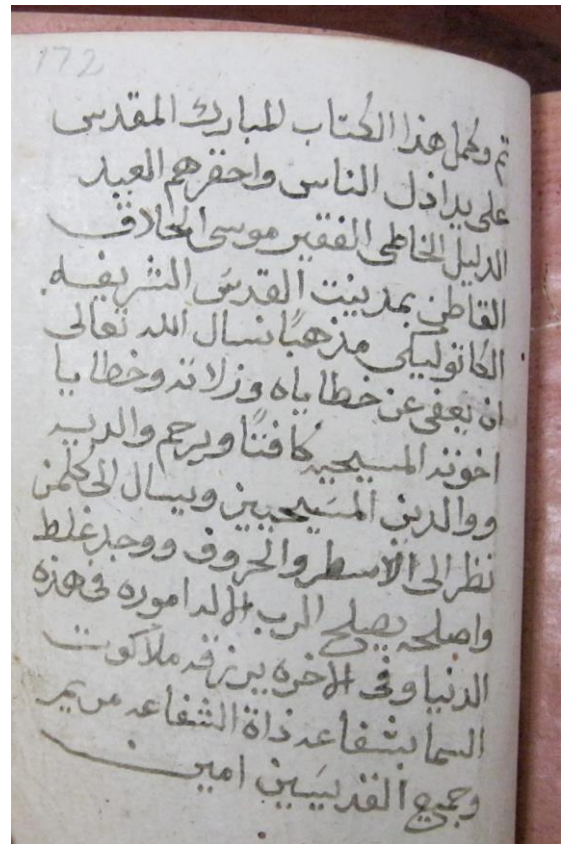 172
تم وكمل هذا الكتاب المبارك المقدس
على يد اذل الناس واحقرهم العبد
الدليل الخاطى الفقير موسى الحلاق
القاطن بمدينت القدسَ الشريفه
الكاتوليكى مذهبًا نسال الله تعالى
ان يعفى عن خطاياه وزلاته وخطايا
اخوته المسيحيه كافتًا ويرحم والديه
ووالدين المسَيحيين ويسال الى كلمن
نظر الى الاسطر والحروف ووجد غلط
واصلحه يصلح الرب الاله اموره فى هذه
الدنيا وفى الاخره يرزقه ملاكوت
السما بشفاعه ذاة الشفاعه مريم
وجميع القديسَين امين